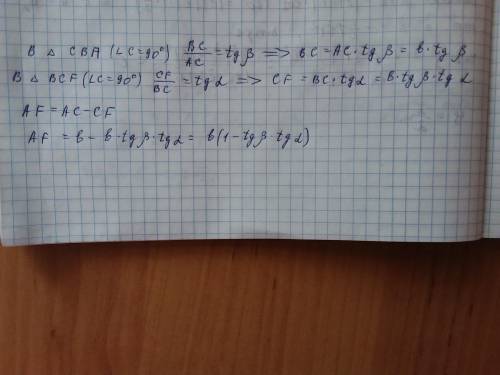 В △ CBA (∠C=90°) BC/AC = tg β => BC = AC · tg β = b · tg β
В △ BCF (∠C=90°) CF/BC = tg α => CF = BC · tg α = b · tg β · tg α
AF = AC - CF
AF = b - b · tg β · tg α = b (1 - tg β · tg α)